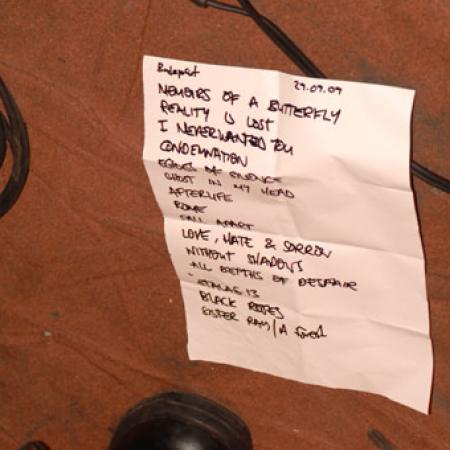 Budapest 29.09.09
MEMOIRS OF A BUTTERFLY
REALITY IS LOST
I NEVER WANTED YOU
CONDEMNATION
ECHOES OF SILENCE
GHOST IN MY HEAD
AFTERLIFE
ROME
FALL APART
LOVE, HATE & SORROW
WITHOUT SHADOWS
ALL DEPTHS OF DESPAIR
STALAG 13
BLACK ROSES
SISTER RAY/A forest